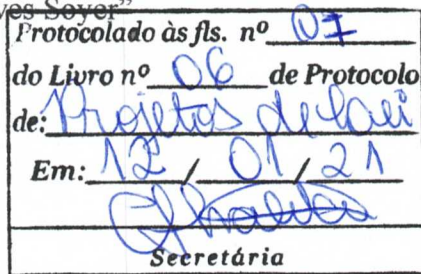 ves Soyer”
Protocolado às fls. nº 07
do Livro nº 06 de Protocolo
de: Projetos de Lei
Em: 12 / 01 / 21
Secretária